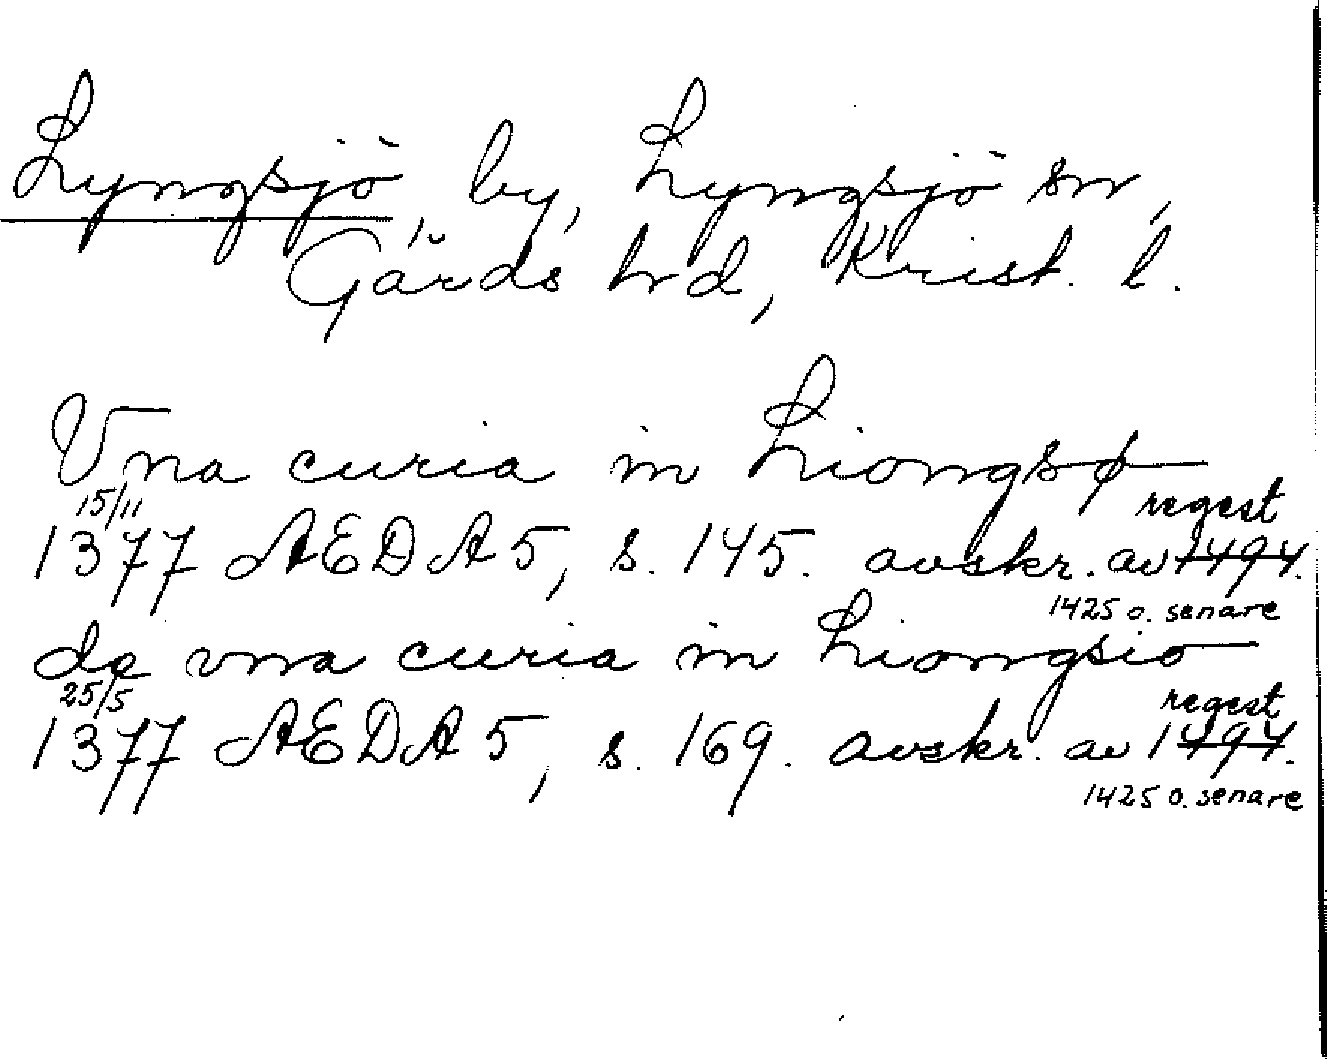 Lyngsjö, by, Lyngsjö sn,
Gärds hd, Krist. l.
Vna curia in Liongsø
15/11
regest
1377 AEDA 5, s. 145. avskr. av 1494.
1425 o. senare
de vna curia in Liongsio
25/5
regest
1377 AEDA 5, s. 169. avskr. av 1494.
1425 o. senare